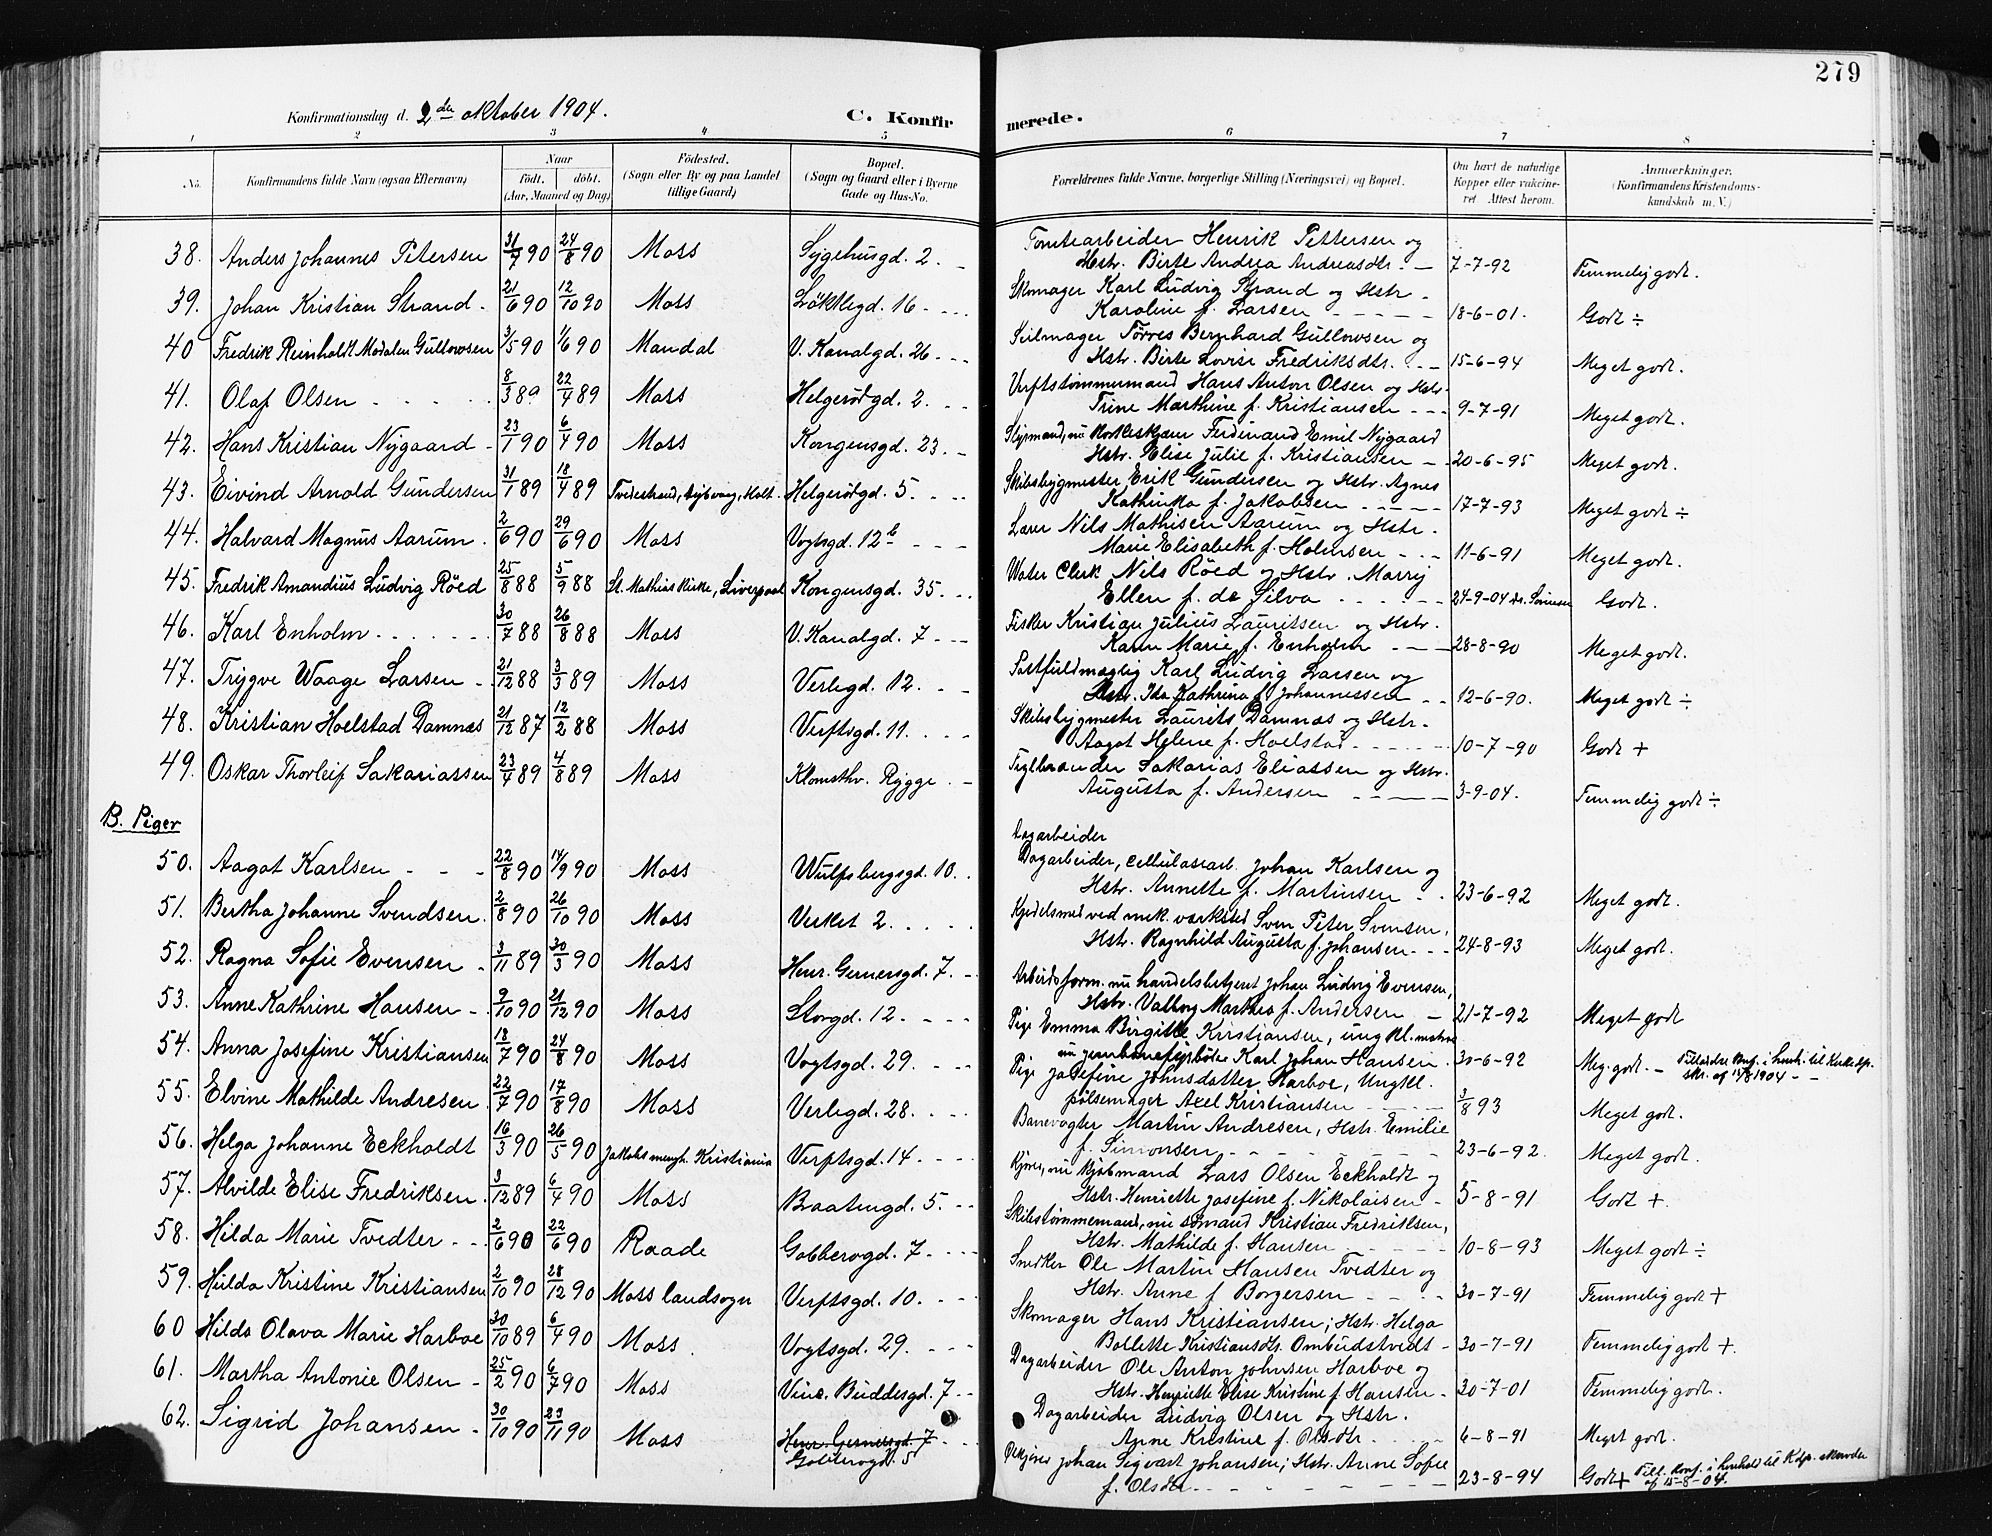 279
Konfirmationsdag d. 2den oktober 1904.
C. Konfirmerede.
1 2 3 4 5 6 7 8
No.
Konfirmandens fulde Navn (ogsaa Efternavn)
Naar
født. døbt.
(Aar, Maaned og Dag)
Födested.
(Sogn eller By og paa Landet
tillige Gaard)
Bopæl.
(Sogn og Gaard eller i Byerne
Gade og Hus-No.
Forældrenes fulde Navne, borgerlige Stilling (Næringsvei) og Bopæl.
Om havt de naturlige
Kopper eller vakcine-
ret Attest herom.
Anmærkninger.
(Konfirmandens Kristendoms-
kundskab m. V.)
38. Anders Johannes Petersen 31/7 90 24/8 90 Moss Sygehusgd. 2. Tomtearbeider Henrik Pettersen og
Hstr. Birte Andrea Andreasdtr. 7-7-92 Temmelig godt.
39. Johan Kristian Strand 21/6 90 12/10 90 Moss Løkkegd. 16 Skomager Karl Ludvig Strand og Hstr.
Karoline f. Larsen 18-6-01. Godt ÷
40 Fredrik Reinholdt Modalen Gullowsen 3/5 90 1/6 90 Mandal V. Kanalgd. 26 Seilmager Tørres Bernhard Gullowsen og
Hstr. Birte Lovise Fredriksdtr. 15-6-94 Meget godt.
41. Olaf Olsen 8/3 89 22/4 89 Moss Helgerødgd. 2. Verftstømmermand Hans Anton Olsen og Hstr.
Trine Marthine f. Kristiansen 9-7-91 Meget godt.
42. Hans Kristian Nygaard 23/1 90 6/4 90 Moss Kongensgd. 23. Styrmand, nu Korkeskjærer Ferdinand Emil Nygaard
Hstr. Elise Julie f. Kristiansen 20-6-95 Meget godt.
43. Eivind Arnold Gundersen 31/1 89 18/4 89 Tvedestrand, Dybvaag, Holt. Helgerødgd. 5. Skibsbygmester Erik Gundersen og Hstr. Agnes
Kathinka f. Jakobsen 17-7-93 Meget godt ÷
44. Halvard Magnus Aarum 2/6 90 29/6 90 Moss Vogtsgd. 12b Lærer Nils Mathisen Aarum og Hstr.
Marie Elisabeth f. Holmsen 11-6-91 Meget godt.
45. Fredrik Amandius Ludvig Röed 25/8 88 5/9 88 St. Mathias Kirke, Liverpool Kongensgd. 35. Water Clerk Nils Röed og Hstr. Marry
Ellen f. de Silva 24-9-04 Dr. Sørensen Godt.
46. Karl Enholm 30/7 88 26/8 88 Moss V. Kanalgd. 7 Fisker Kristian Julius Lauritsen og Hstr.
Karen Marie f. Enholm 28-8-90 Meget godt.
47. Trygve Waage Larsen 21/12 88 3/3 89 Moss Verlegd. 12. Postfuldmægtig Karl Ludvig Larsen og
Hstr. Ida Kathrina f. Johannessen 12-6-90. Meget godt ÷
48. Kristian Hoelstad Damnæs 21/12 87 12/2 88 Moss Verftsgd. 11. Skibsbygmester Laurits Damnæs og Hstr.
Aagot Helene f. Hoelstad 10-7-90 Godt +
49. Oskar Thorleif Sakariassen 23/4 89 4/8 89 Moss Klomsthv. Rygge Teglbrænder Sakarias Eliassen og Hstr.
Augusta f. Andersen 3-9-04. Temmelig godt ÷
B. Piger
Dagarbeider
50. Aagot Karlsen 22/8 90 14/9 90 Moss Wulfsbergsgd. 10. Dagarbeider, Cellulosearb. Johan Karlsen og
Hstr. Annette f. Martinsen 23-6-92 Meget godt.
51. Bertha Johanne Svendsen 2/8 90 26/10 90 Moss Verket 2. Kjedelsmed ved mek. værksted Sven Peter Svensen,
Hstr. Ragnhild Augusta f. Johansen 24-8-93 Meget godt.
52. Ragna Sofie Evensen 3/11 89 30/3 90 Moss Henr. Gernersgd. 7. Arbeidsform. nu handelsbetjent Johan Ludvig Evensen,
Hstr. Valborg Marthea f. Andersen 21-7-92 Meget godt
53. Anne Kathrine Hansen 9/10 90 21/12 90 Moss Storgd. 12. Pige Emma Birgitte Kristiansen, ungkl. matros
nu jernbanefyrbøter Karl Johan Hansen. 30-6-92 Meg. godt. – Tilladt Konf. i henh. til Kirkedp.
skr. af 15/8 1904
54. Anna Josefine Kristiansen 13/7 90 24/8 90 Moss Vogtsgd. 29. Pige Josefine Johnsdatter Harboe, Ungkl.
pølsemager Axel Kristiansen 3/8 93 Meget godt.
55. Elvine Mathilde Andresen 22/7 90 17/8 90 Moss Verlegd. 28. Banevogter Martin Andresen, Hstr. Emilie
f. Simonsen 23-6-92. Meget godt.
56. Helga Johanne Eckholdt 16/3 90 26/5 90 Jakobs mengh. Kristiania Verftsgd. 14 Kjører, nu kjøbmand Lars Olsen Eckholdt og
Hstr. Henriette Josefine f. Nikolaisen 5-8-91 Godt +
57. Alvilde Elise Fredriksen 3/12 89 6/4 90 Moss Braatengd. 5. Skibstømmermand, nu sømand Kristian Fredriksen,
Hstr. Mathilde f. Hansen 10-8-93 Meget godt ÷
58. Hilda Marie Tvedter 2/6 90 22/6 90 Raade Gabberogd. 7 Snedker Ole Martin Hansen Tvedter og
Hstr. Anne f Borgersen 30-7-91 Temmelig godt +
59. Hilda Kristine Kristiansen 2/10 90 28/12 90 Moss landsogn Verftsgd. 10. Skomager Hans Kristiansen; Hstr. Helga
Bollette Kristiansdtr. Ombudstvedt 30-7-91 Temmelig godt +.
60 Hilda Olava Marie Harboe 30/10 89 6/4 90 Moss Vogtsgd. 29. Dagarbeider Ole Anton Johnsen Harboe og
Hstr. Henriette Elise Kristine f. Hansen 30-7-01 Temmelig godt.
61. Martha Antonie Olsen 25/2 90 6/7 90 Moss Vinc. Buddesgd. 7 Dagarbeider Ludvig Olsen og Hstr.
Anne Kristine f. Olsdtr. 6-8-91 Meget godt.
62. Sigrid Johansen 30/10 90 23/11 90 Moss Henr. Gernersgd. 7
Gabberogd. 5 Johan Sigvart Johansen; Hstr. Anne Sofie
f. Olsdtr. 23-8-94 Godt + Till. Konf. i henhold til Kdp. skrivelse
af 15-8-04.